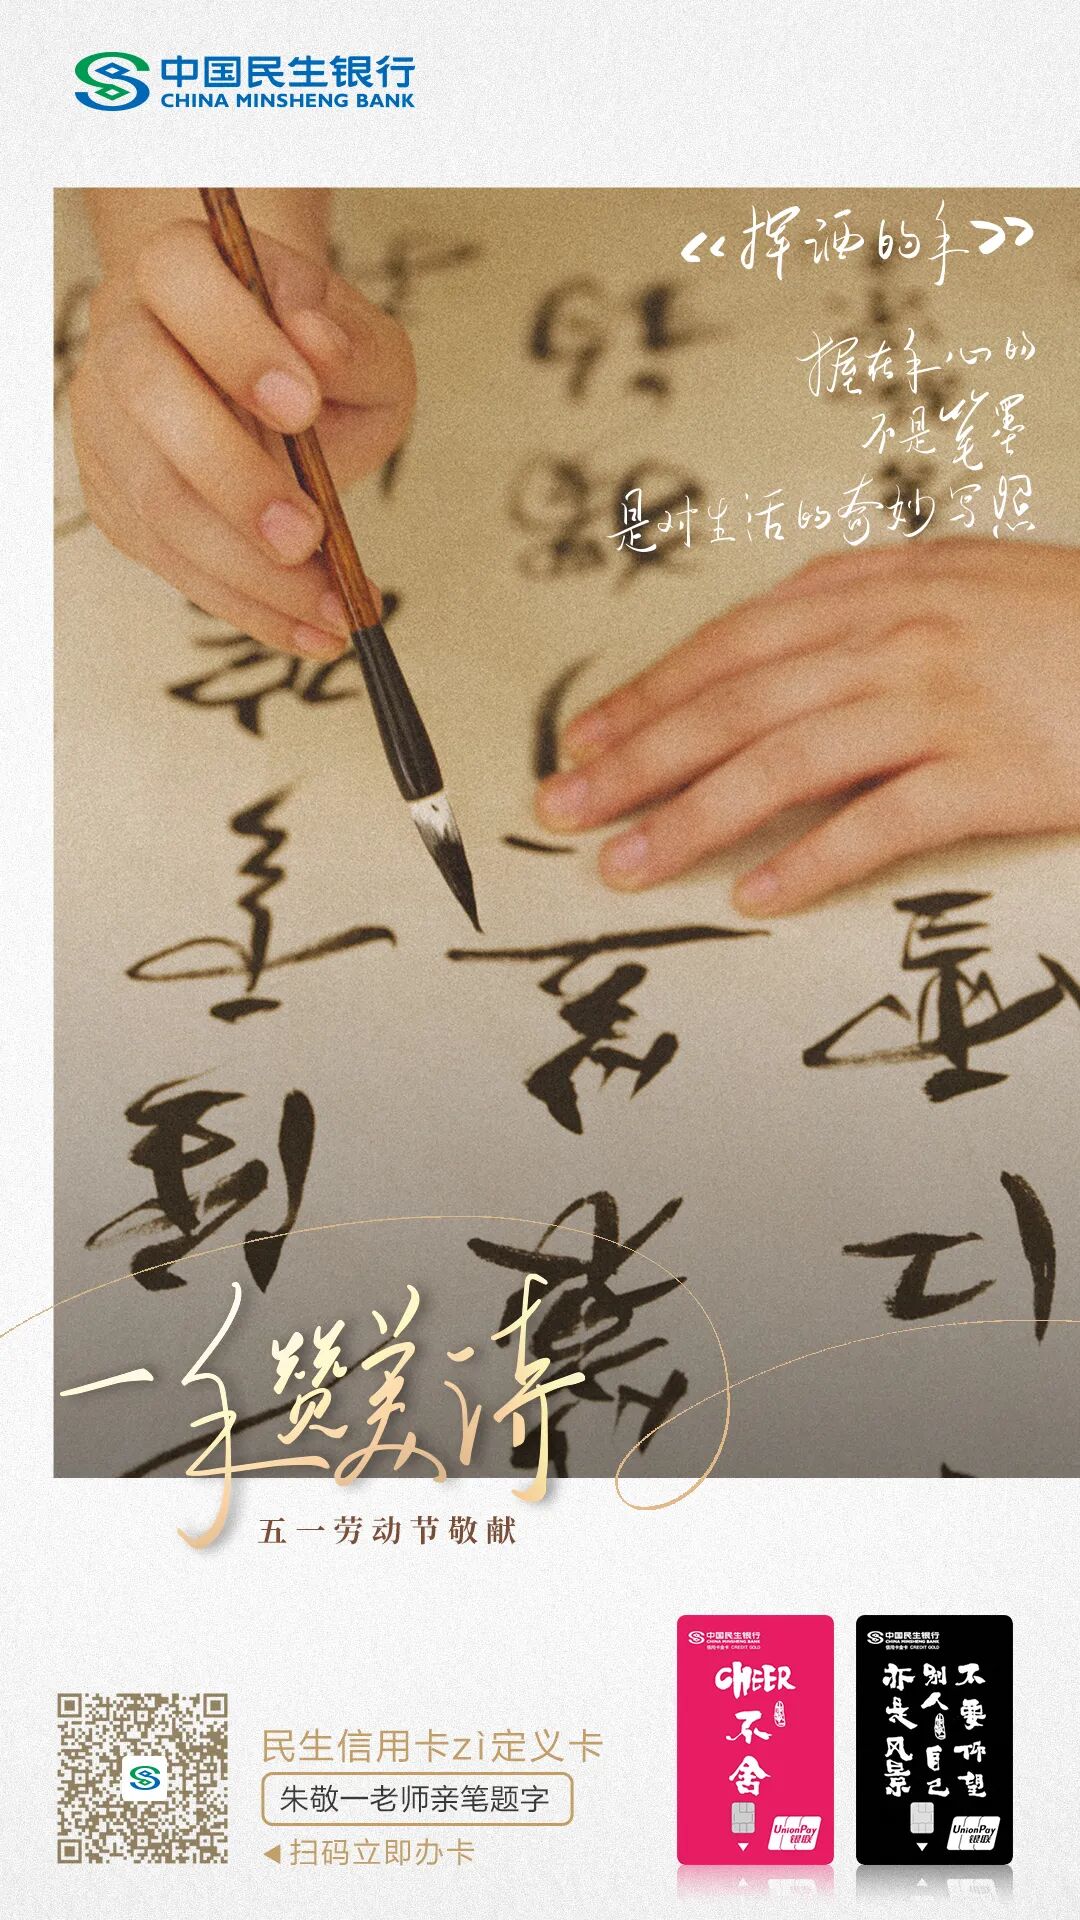 中国民生银行
CHINA MINSHENG BANK
《挥洒的手》
握在手心的
不是笔墨
是对生活的奇妙写照
一手赞美诗
五一劳动节敬献
民生信用卡zì定义卡
朱敬一老师亲笔题字
扫码立即办卡
中国民生银行
CHINA MINSHENG BANK
信用卡金卡 CREDIT GOLD
CHEER
不
舍
UnionPay
银联
中国民生银行
CHINA MINSHENG BANK
信用卡金卡 CREDIT GOLD
不要仰望
别人自己
亦是风景
UnionPay
银联